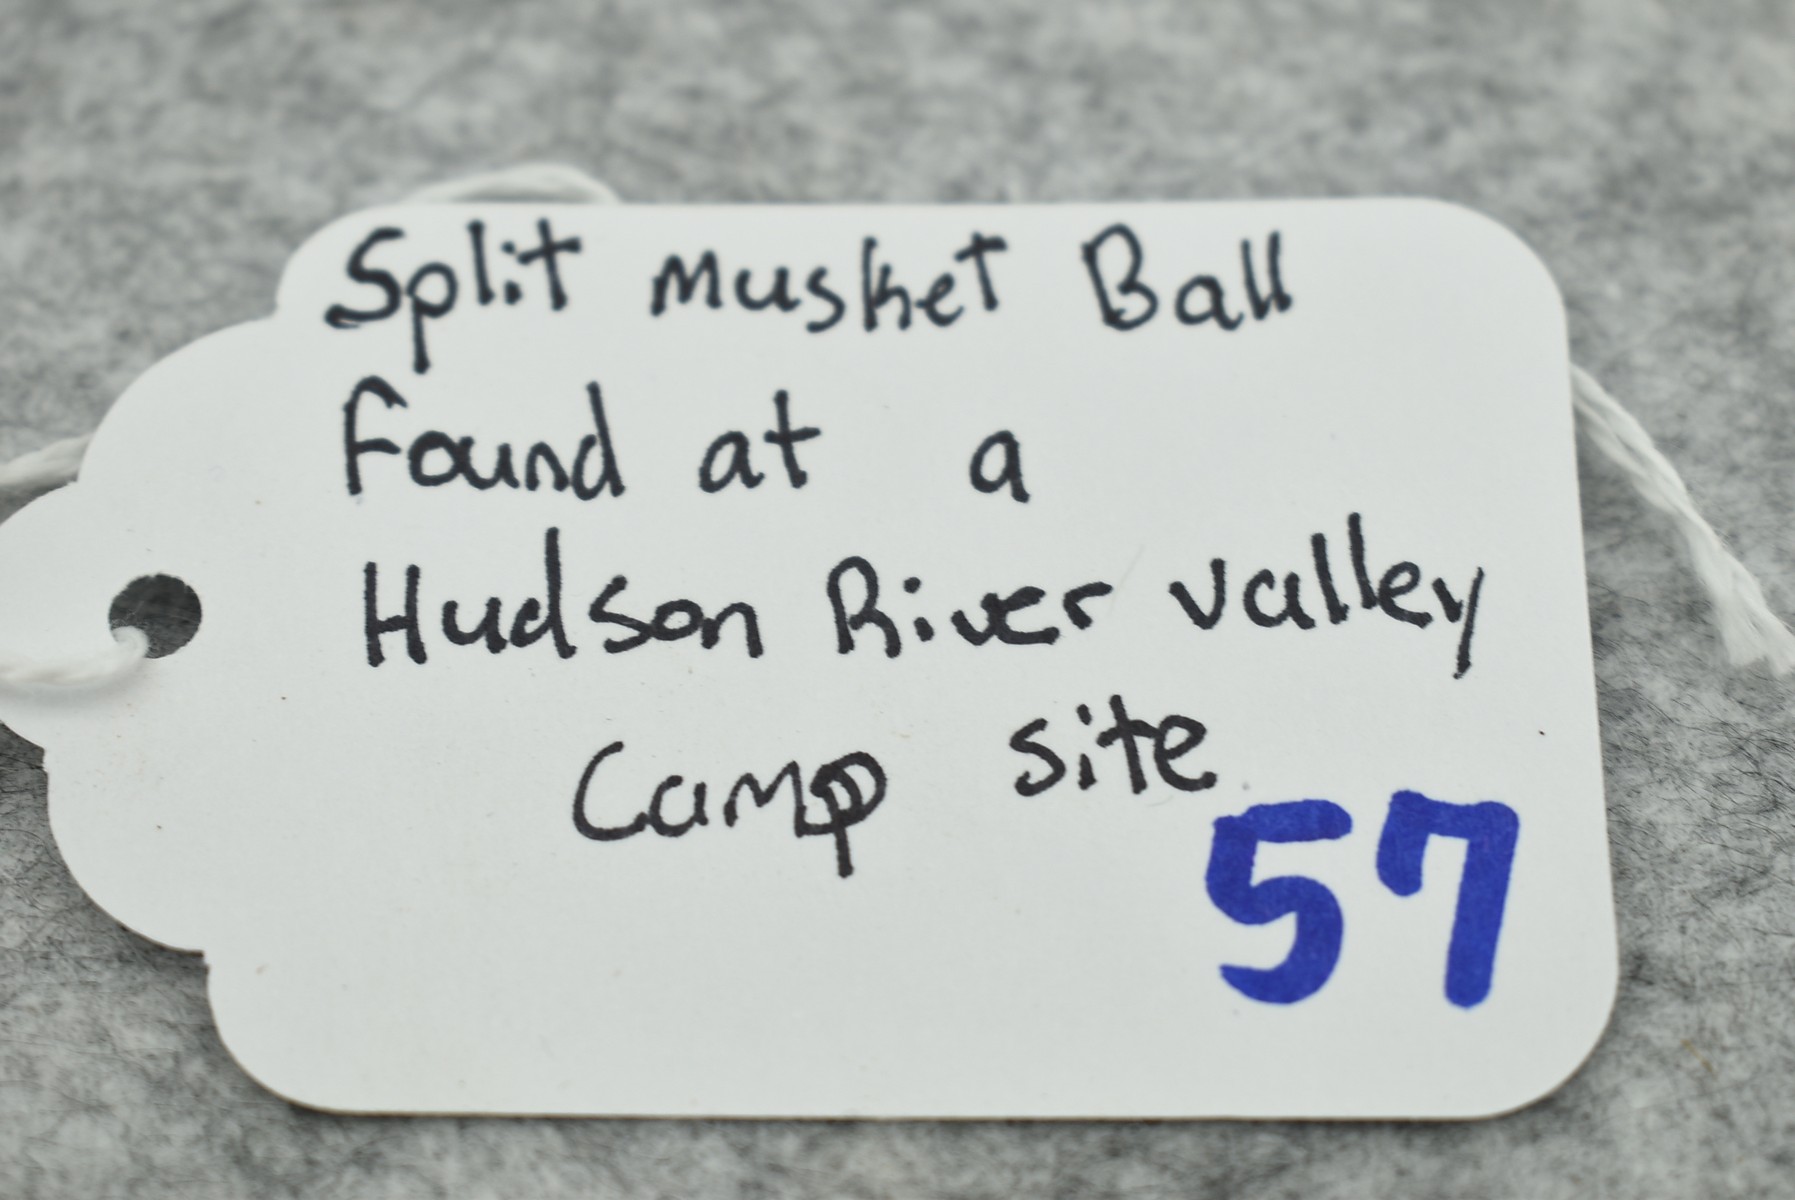 Split Musket Ball
Found at a
Hudson River Valley
Camp site
57